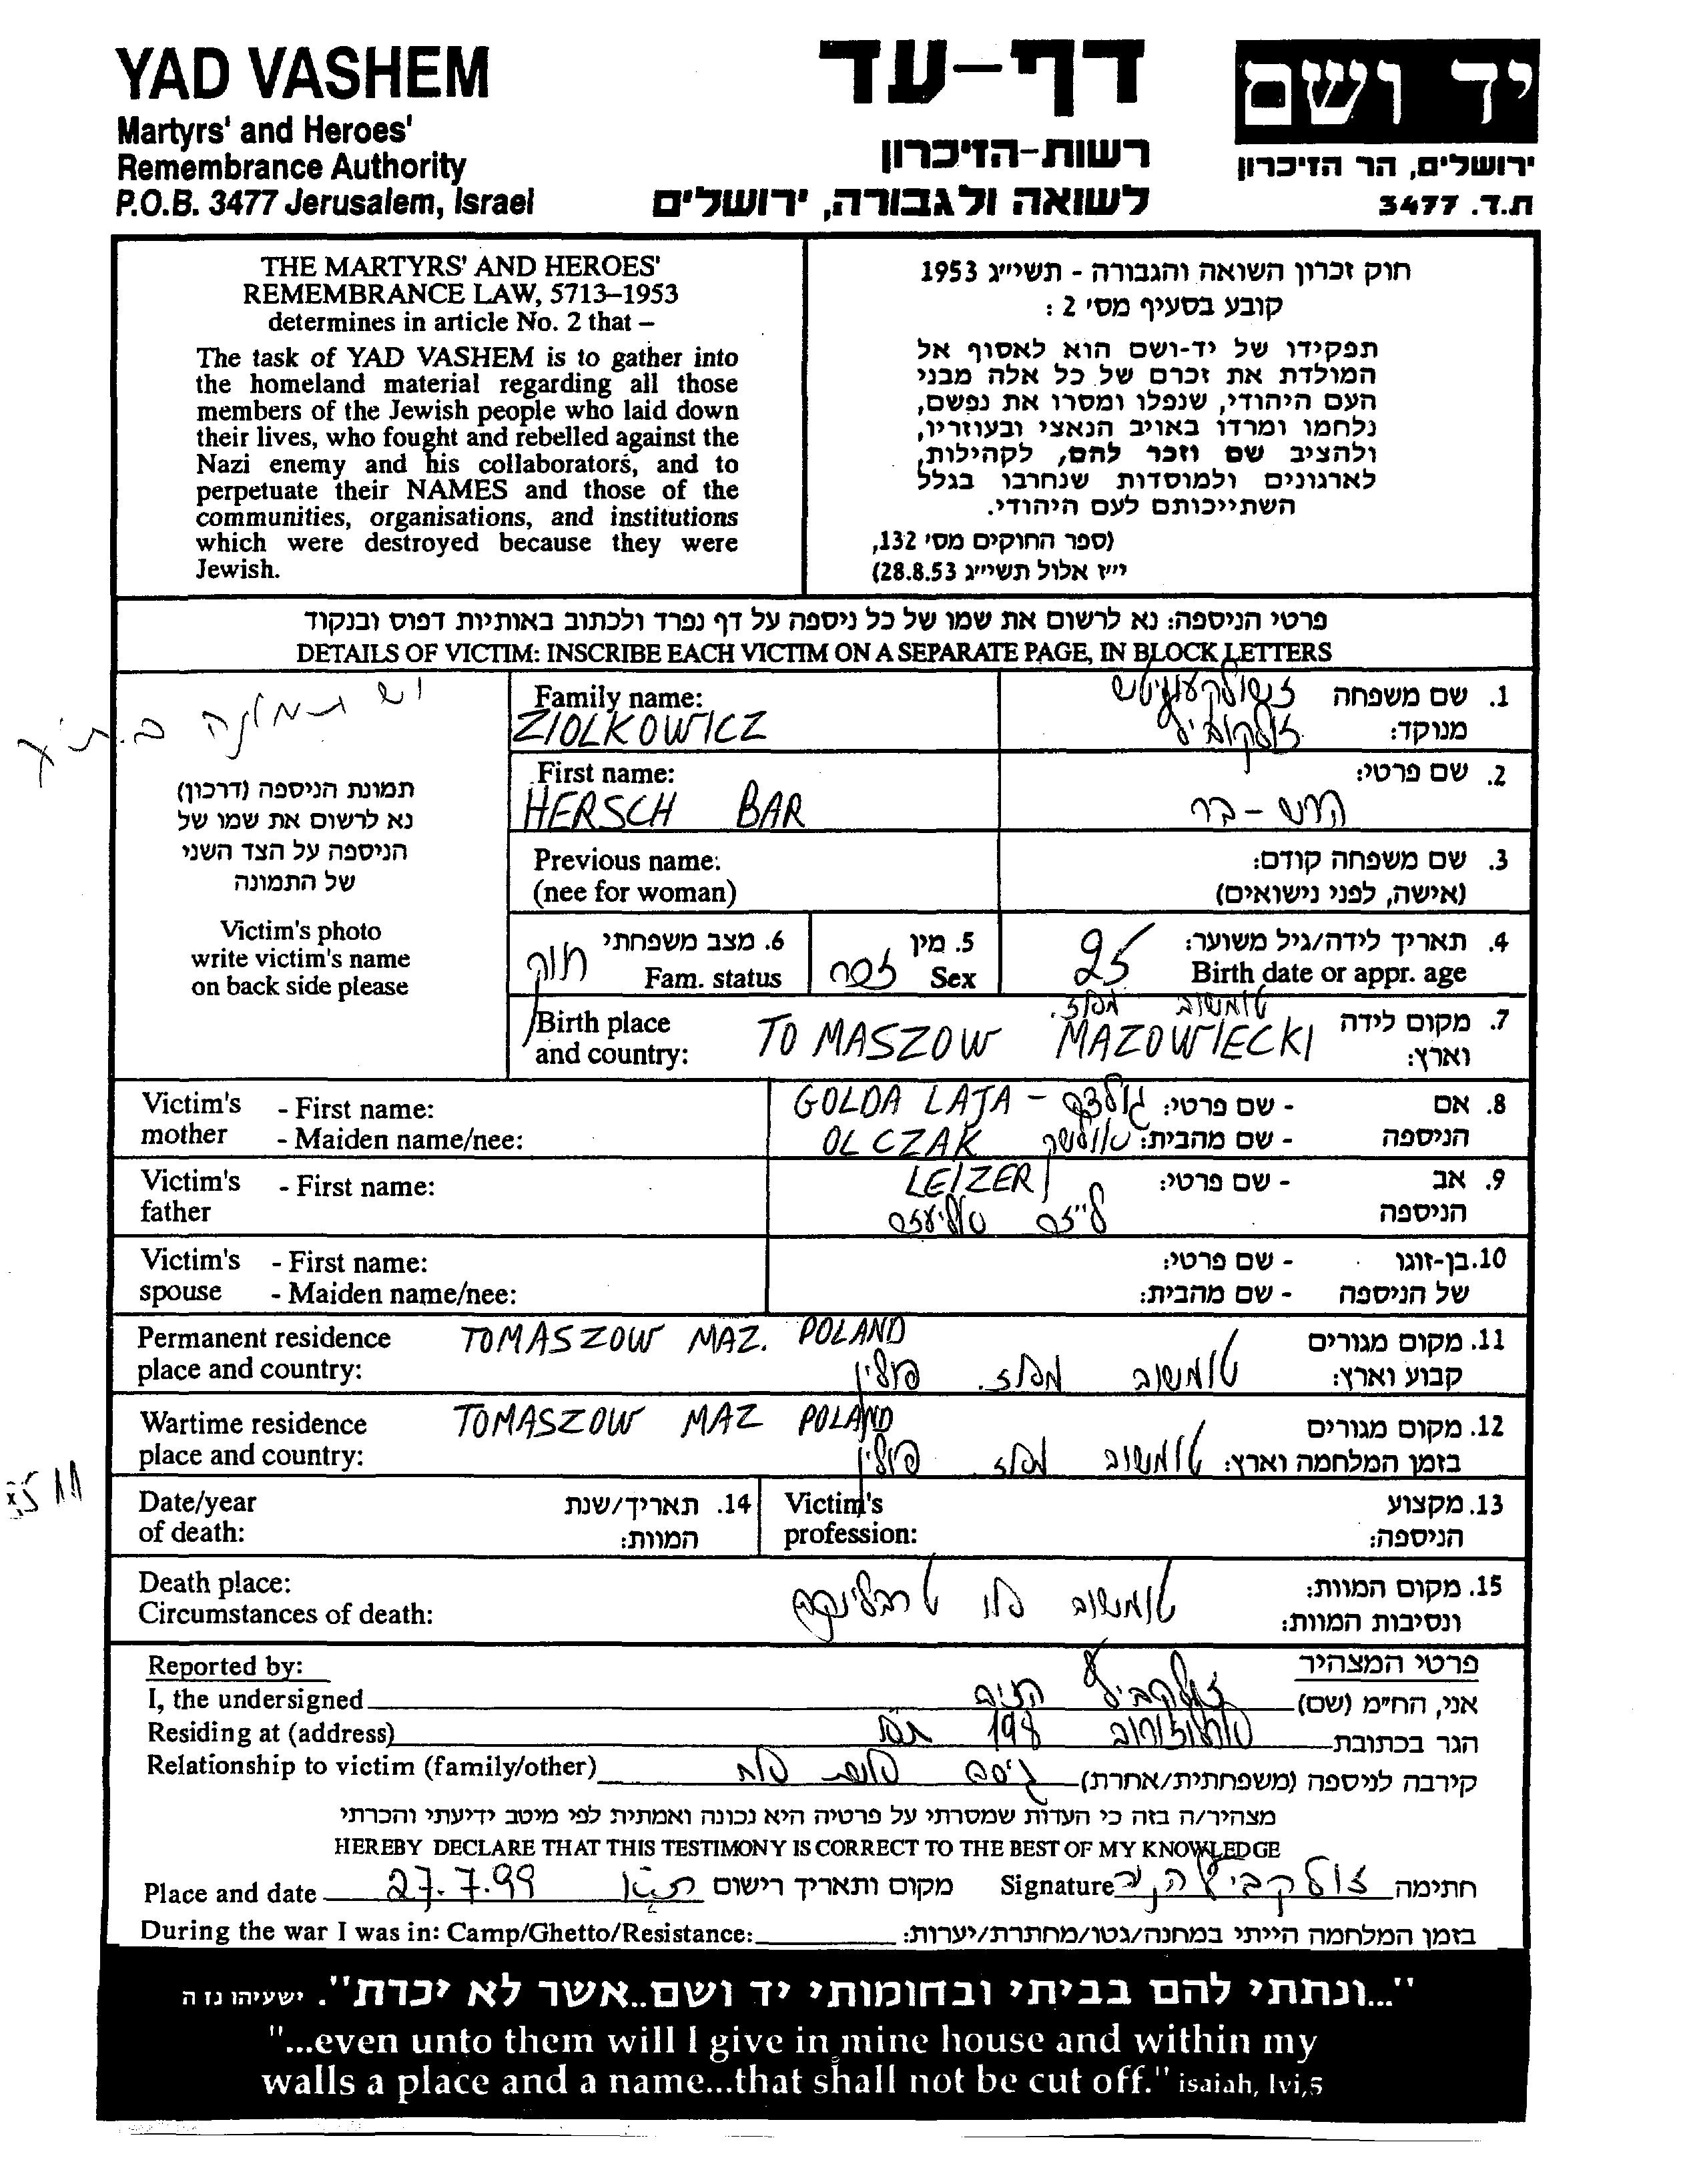 YAD VASHEM
Martyrs' and Heroes'
Remembrance Authority
P.O.B. 3477 Jerusalem, Israel
דף-עד
רשות-הזיכרון
לשואה ולגבורה, ירושלים
יד ושם
ירושלים, הר הזיכרון
ת.ד. 3477
THE MARTYRS' AND HEROES'
REMEMBRANCE LAW, 5713–1953
determines in article No. 2 that –
The task of YAD VASHEM is to gather into
the homeland material regarding all those
members of the Jewish people who laid down
their lives, who fought and rebelled against the
Nazi enemy and his collaborators, and to
perpetuate their NAMES and those of the
communities, organisations, and institutions
which were destroyed because they were
Jewish.
חוק זכרון השואה והגבורה - תשי״ג 1953
קובע בסעיף מס׳ 2 :
תפקידו של יד-ושם הוא לאסוף אל
המולדת את זכרם של כל אלה מבני
העם היהודי, שנפלו ומסרו את נפשם,
נלחמו ומרדו באויב הנאצי ובעוזריו,
ולהציב שם וזכר להם, לקהילות,
לארגונים ולמוסדות שנחרבו בגלל
השתייכותם לעם היהודי.
(ספר החוקים מס׳ 132,
י״ז אלול תשי״ג 28.8.53)
פרטי הניספה: נא לרשום את שמו של כל ניספה על דף נפרד ולכתוב באותיות דפוס ובנקוד
DETAILS OF VICTIM: INSCRIBE EACH VICTIM ON A SEPARATE PAGE, IN BLOCK LETTERS
יש תמונה
תמונת הניספה (דרכון)
נא לרשום את שמו של
הניספה על הצד השני
של התמונה
Victim's photo
write victim's name
on back side please
Family name:
ZIOLKOWICZ
1. שם משפחה
מנוקד:
זולקוביץ
First name:
HERSCH BAR
2. שם פרטי:
הרש - בר
Previous name:
(nee for woman)
3. שם משפחה קודם:
(אישה, לפני נישואים)
4. תאריך לידה/גיל משוער:
Birth date or appr. age
25
5. מין
Sex
זכר
6. מצב משפחתי
Fam. status
רווק
Birth place
and country:
7. מקום לידה
וארץ:
טומשוב מאז.
TOMASZOW MAZOWIECKI
Victim's mother - First name:
- Maiden name/nee:
8. אם הניספה - שם פרטי:
- שם מהבית:
GOLDA LAJA - גולדה
OLCZAK
Victim's father - First name:
9. אב הניספה - שם פרטי:
LEIZER
לייזר אליעזר
Victim's spouse - First name:
- Maiden name/nee:
10. בן-זוגו של הניספה - שם פרטי:
- שם מהבית:
Permanent residence
place and country:
11. מקום מגורים
קבוע וארץ:
TOMASZOW MAZ. POLAND
טומשוב מאז. פולין
Wartime residence
place and country:
12. מקום מגורים
בזמן המלחמה וארץ:
TOMASZOW MAZ POLAND
טומשוב מאז. פולין
Date/year
of death:
14. תאריך/שנת
המוות:
Victim's
profession:
13. מקצוע
הניספה:
Death place:
Circumstances of death:
15. מקום המוות:
ונסיבות המוות:
טומשוב או טרבלינקה
Reported by:
פרטי המצהיר
I, the undersigned
אני, הח״מ (שם)
זולקוביץ
Residing at (address)
הגר בכתובת
ארלוזורוב 198 תא
Relationship to victim (family/other)
קירבה לניספה (משפחתית/אחרת)
גיסה
מצהיר/ה בזה כי העדות שמסרתי על פרטיה היא נכונה ואמתית לפי מיטב ידיעתי והכרתי
HEREBY DECLARE THAT THIS TESTIMONY IS CORRECT TO THE BEST OF MY KNOWLEDGE
Place and date 27.7.99 מקום ותאריך רישום
Signature זולקוביץ חתימה
During the war I was in: Camp/Ghetto/Resistance:
בזמן המלחמה הייתי במחנה/גטו/מחתרת/יערות:
"...ונתתי להם בביתי ובחומותי יד ושם..אשר לא יכרת". ישעיהו נז ה
"...even unto them will I give in mine house and within my
walls a place and a name...that shall not be cut off." isaiah, lvi,5